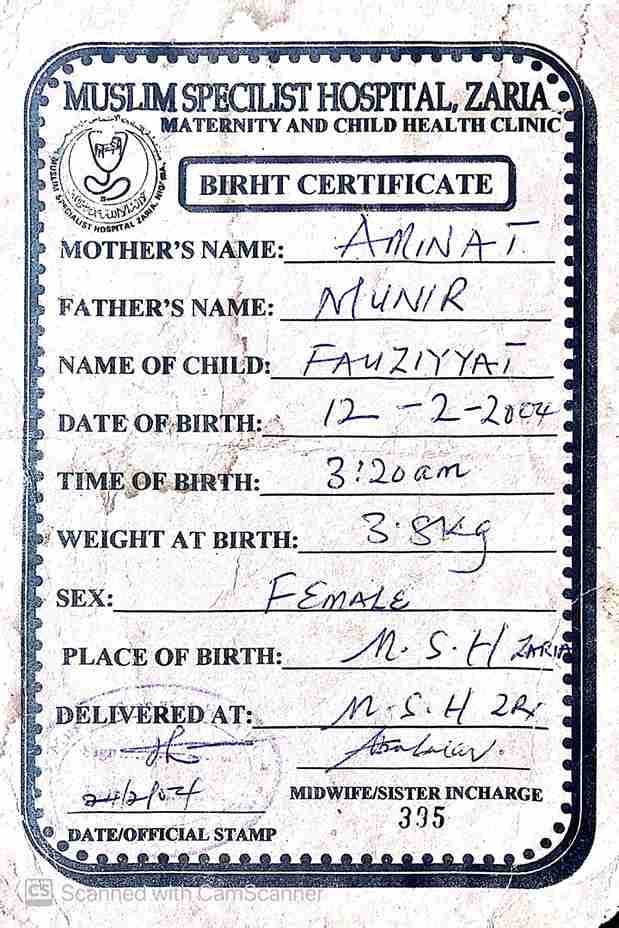 MUSLIM SPECILIST HOSPITAL, ZARIA
MATERNITY AND CHILD HEALTH CLINIC
MUSLIM SPECIALIST HOSPITAL ZARIA, NIGERIA
BIRHT CERTIFICATE
MOTHER'S NAME: AMINAT.
FATHER'S NAME: MUNIR
NAME OF CHILD: FAUZIYYAT
DATE OF BIRTH: 12 - 2 - 2004
TIME OF BIRTH: 3:20am
WEIGHT AT BIRTH: 3.8kg
SEX: FEMALE
PLACE OF BIRTH: M.S.H ZARIA
DELIVERED AT: M.S.H ZR
24/2/04
MIDWIFE/SISTER INCHARGE
395
DATE/OFFICIAL STAMP
CS Scanned with CamScanner